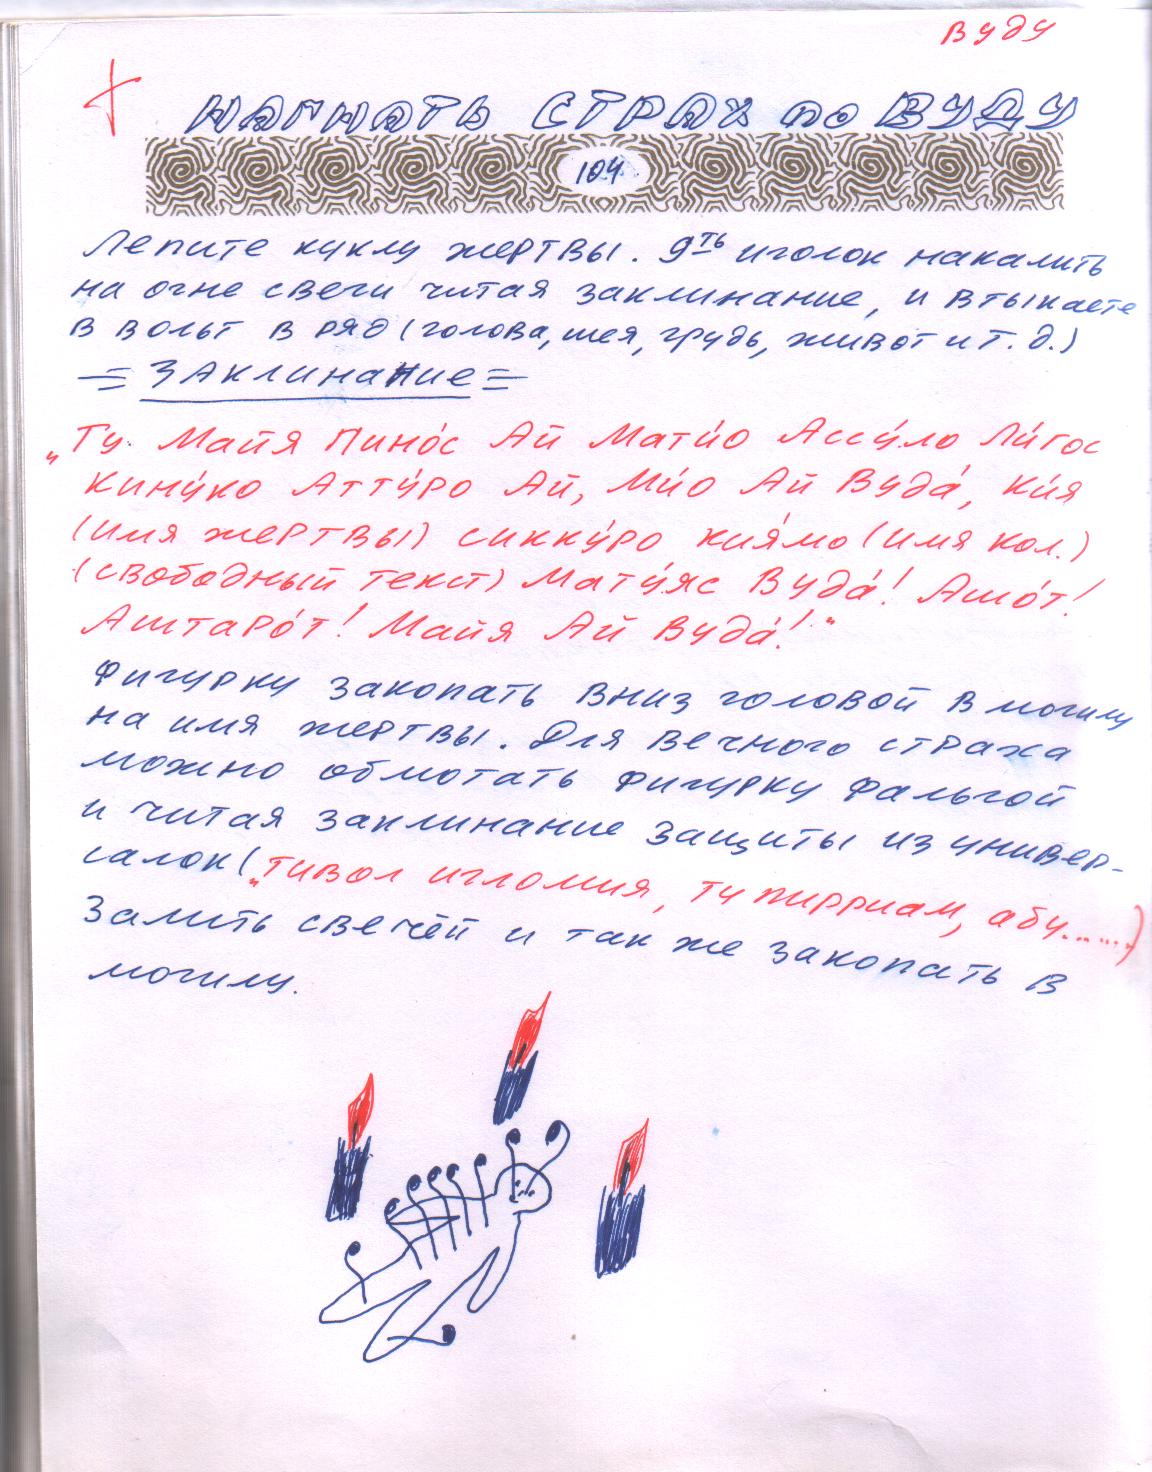 Вуду
НАГНАТЬ СТРАХ по ВУДУ
104
Лепите куклу жертвы. 9ть иголок накалить
на огне свечи читая заклинание, и втыкаете
в вольт в ряд (голова, шея, грудь, живот и т. д.)
= Заклинание =
„Ту Майя Пино́с Ай Мати́о Ассу́ло Ли́гос
Кину́ко Атту́ро Ай, Ми́о Ай Вуда́, Ки́я
(имя жертвы) сикку́ро кия́мо (имя кол.)
(свободный текст) Мату́яс Вуда́! Ашо́т!
Аштаро́т! Майя Ай Вуда́!"
Фигурку закопать вниз головой в могилу
на имя жертвы. Для вечного страха
можно обмотать фигурку фальгой
и читая заклинание защиты из универ-
салок („тивол игломия, ту пирриам, абу.......)
Залить свечёй и так же закопать в
могилу.